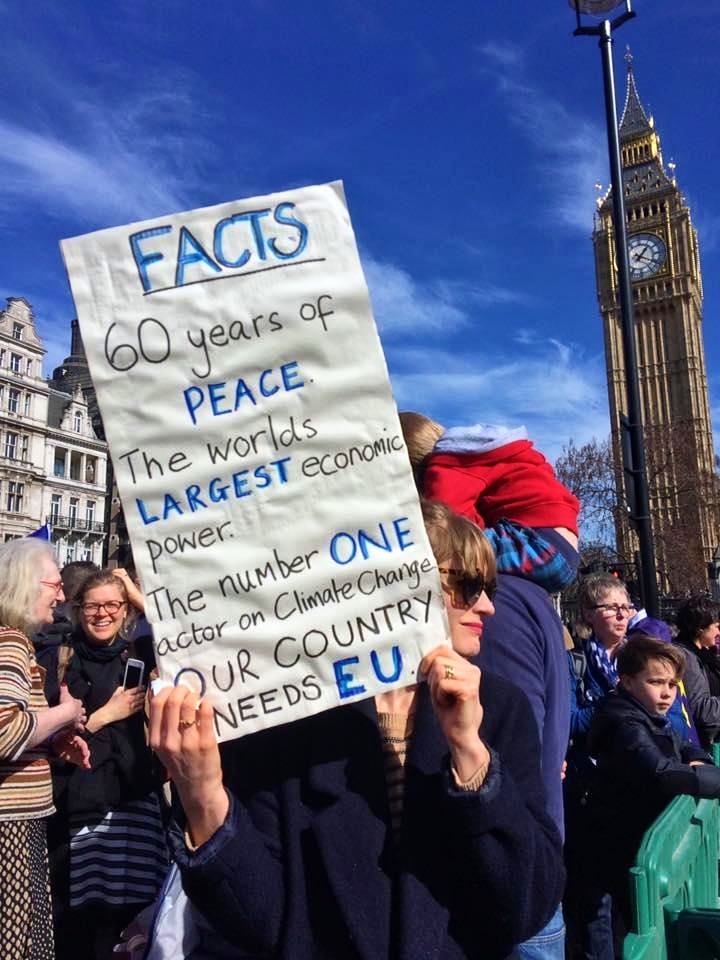 FACTS
60 years of
PEACE.
The worlds
LARGEST economic
power.
The number ONE
actor on Climate Change
OUR COUNTRY
NEEDS EU.